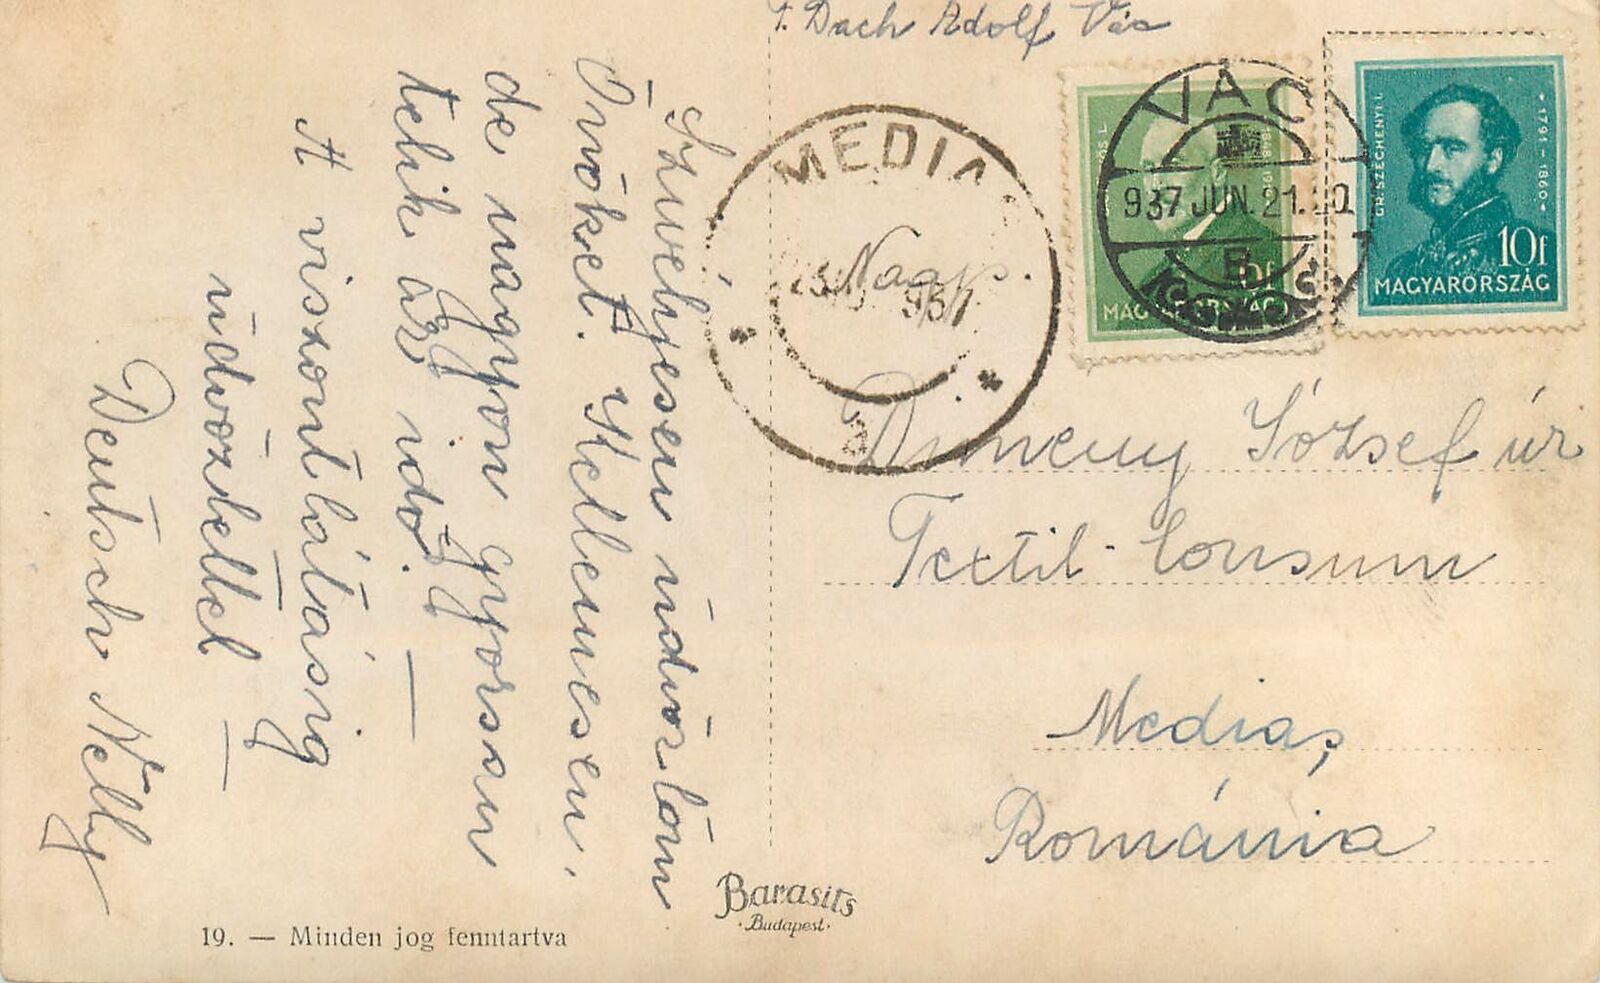 F. Dach Adolf Vác
Szívélyesen üdvözlöm
Önöket. Kellemesen,
de nagyon gyorsan
telik az idő.
A viszontlátásig
üdvözlettel
Deutsch Nelly
MEDIAȘ
937
VÁC
937 JUN. 21.
B
MAGYARORSZÁG
GR. SZÉCHENYI I.
1791-1860
10f
MAGYARORSZÁG
Nagys.
Dimeny József úr
Textil-Consum
Mediaș
Románia
Barasits
Budapest
19. — Minden jog fenntartva